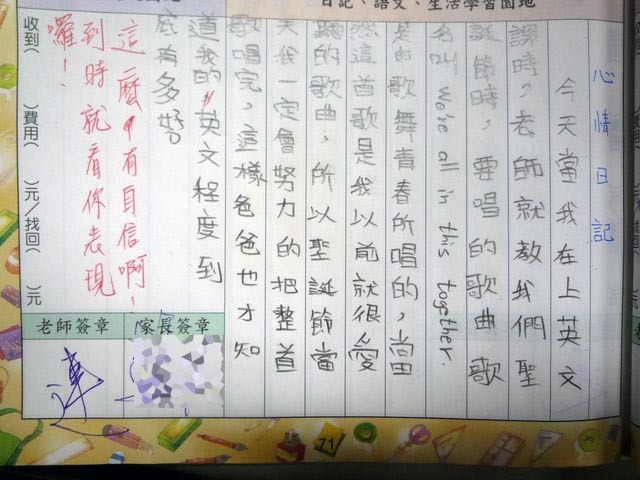 日記、語文、生活學習園地
心情日記
今天當我在上英文
課時，老師就教我們聖
誕節時，要唱的歌曲歌
名叫 we're all in this together.
是的歌舞青春所唱的，當
然這首歌是我以前就很愛
聽的歌曲，所以聖誕節當
天我一定會努力的把整首
歌唱完，這樣爸爸也才知
道我的英文程度到
底有多好
這麼有自信啊！
到時就看你表現
囉！
收到（ ）費用（ ）元/找回（ ）元
老師簽章
家長簽章
71